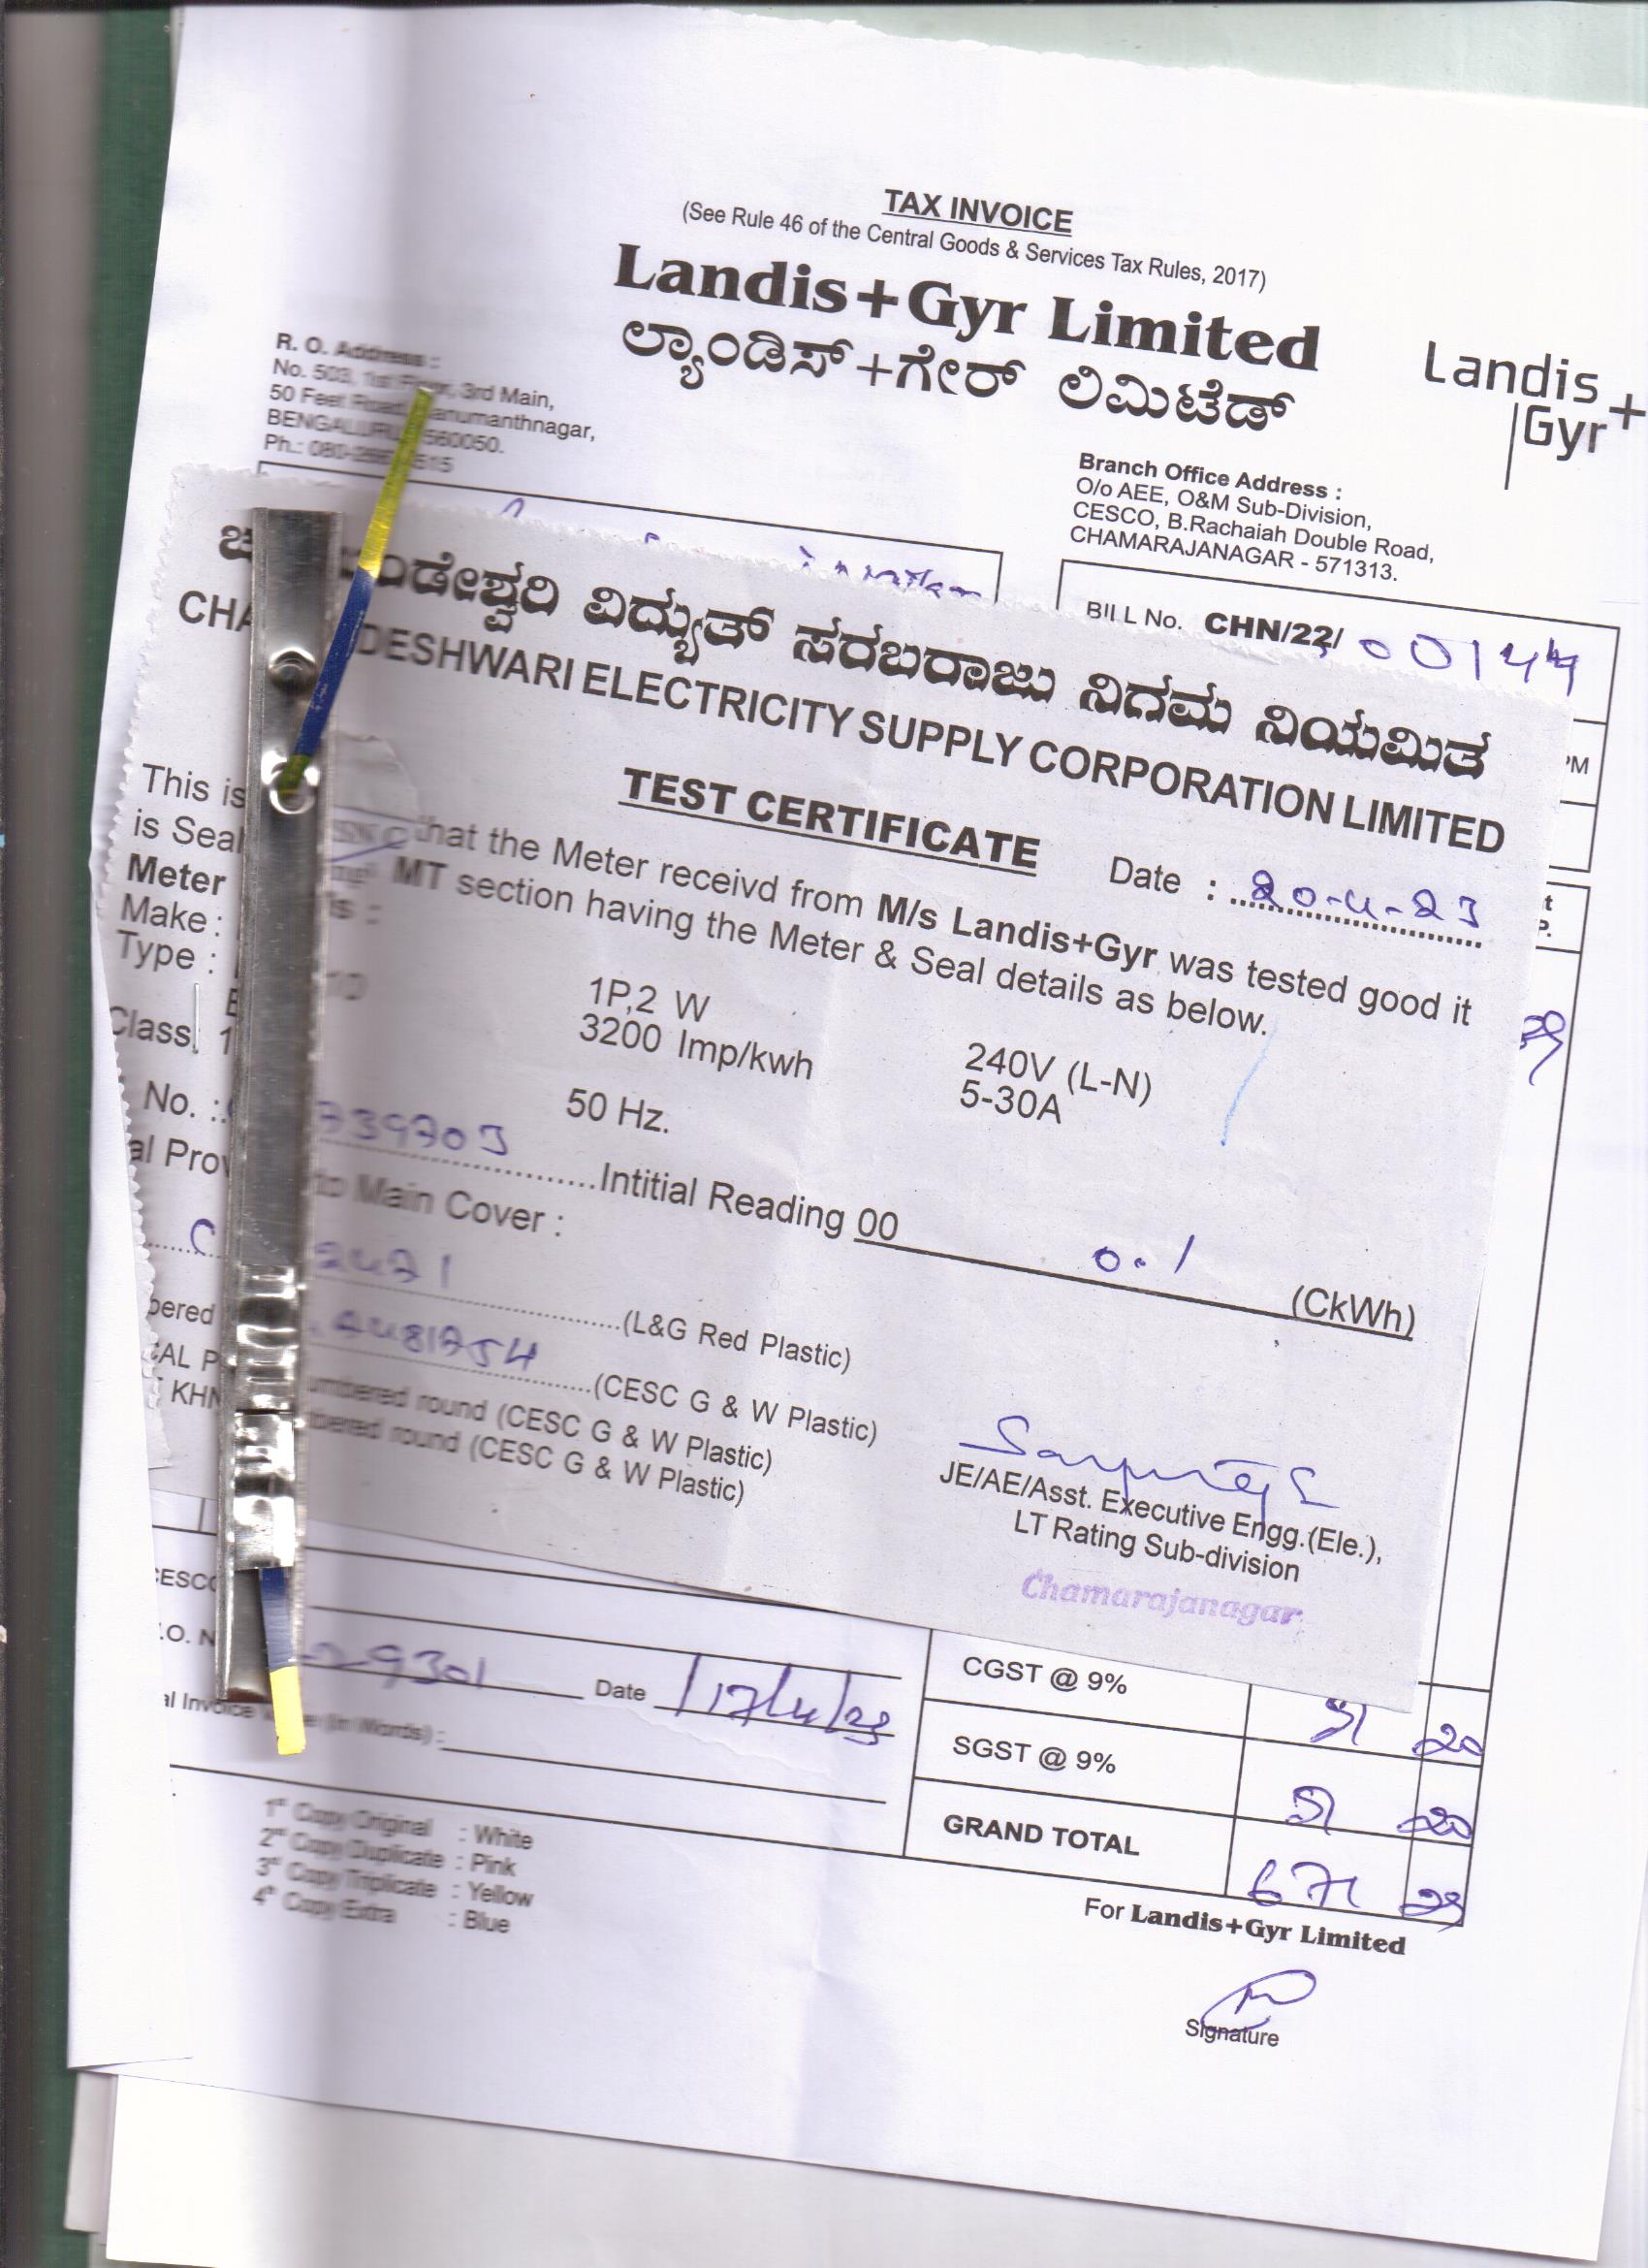 TAX INVOICE
(See Rule 46 of the Central Goods & Services Tax Rules, 2017)
Landis+Gyr Limited
ಲ್ಯಾಂಡಿಸ್+ಗೇರ್ ಲಿಮಿಟೆಡ್
Landis+
Gyr
R. O. Address :
No. 503, 3rd Main,
50 Feet Road, anumanthnagar,
BENGALURU 560050.
Ph.: 080- 515
Branch Office Address :
O/o AEE, O&M Sub-Division,
CESCO, B.Rachaiah Double Road,
CHAMARAJANAGAR - 571313.
BILL No. CHN/22/ 00144
PM
ಂಡೇಶ್ವರಿ ವಿದ್ಯುತ್ ಸರಬರಾಜು ನಿಗಮ ನಿಯಮಿತ
CHA DESHWARI ELECTRICITY SUPPLY CORPORATION LIMITED
TEST CERTIFICATE
Date : 20-4-23
This is that the Meter receivd from M/s Landis+Gyr was tested good it
is Seal MT section having the Meter & Seal details as below.
Meter ls :
Make : 1P,2 W 240V (L-N)
Type : 3200 Imp/kwh 5-30A
Class 1 50 Hz.
No. : 739703 Intitial Reading 00 0.1 (CkWh)
al Prov to Main Cover :
2471 (L&G Red Plastic)
bered 4481754 (CESC G & W Plastic)
CAL P umbered round (CESC G & W Plastic)
KHN bered round (CESC G & W Plastic)
JE/AE/Asst. Executive Engg.(Ele.),
LT Rating Sub-division
Chamarajanagar
CESCO
.O. N 9301 Date 17/4/23
al Invoice (In Words) :
CGST @ 9% 51 20
SGST @ 9% 51 20
GRAND TOTAL 671 29
1st Copy Original : White
2nd Copy Duplicate : Pink
3rd Copy Triplicate : Yellow
4th Copy Extra : Blue
For Landis+Gyr Limited
Signature